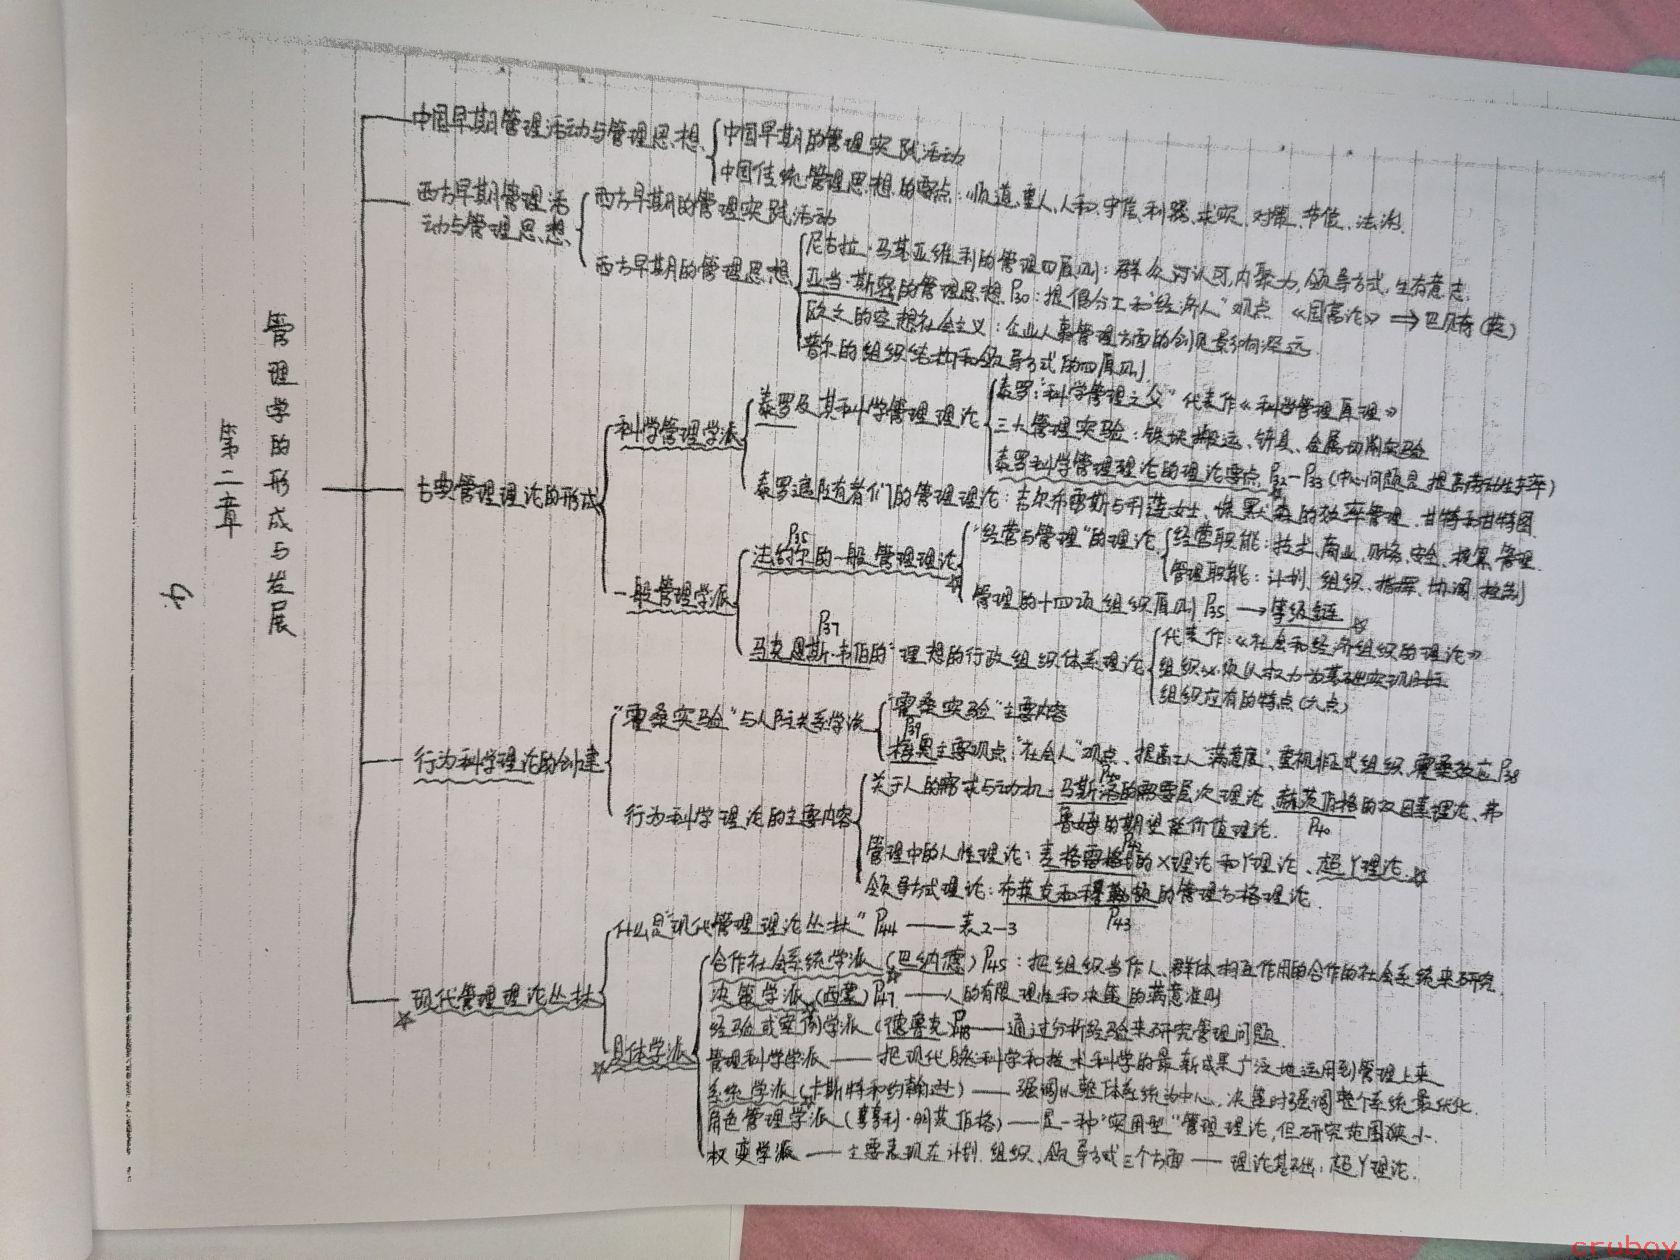 第二章
管理学的形成与发展
中国早期管理活动与管理思想
中国早期的管理实践活动
中国传统管理思想的要点：顺道、重人、人和、守信、利器、求实、对策、节俭、法治.
西方早期管理活
动与管理思想
西方早期的管理实践活动
西方早期的管理思想
尼古拉·马基亚维利的管理四原则：群众对认可,内聚力,领导方式,生存意志.
亚当·斯密的管理思想 P30：提倡分工和"经济人"观点 《国富论》 ⇒ 巴贝奇(英)
欧文的空想社会主义：企业人事管理方面的创见影响深远.
普尔的组织结构和领导方式的四原则
古典管理理论的形成
科学管理学派
泰罗及其科学管理理论
泰罗："科学管理之父" 代表作《科学管理原理》
三大管理实验：铁块搬运、铲具、金属切削实验
泰罗科学管理理论的理论要点 P32-P33 (中心问题是提高劳动生产率)
泰罗追随者们的管理理论：吉尔布雷斯与莉莲女士、埃默森的效率管理、甘特和甘特图
一般管理学派
P35
法约尔的一般管理理论
"经营与管理"的理论
经营职能：技术、商业、财务、安全、核算、管理.
管理职能：计划、组织、指挥、协调、控制
管理的十四项组织原则 P35 → 等级链
P37
马克思斯·韦伯的"理想的行政组织体系理论
代表作：《社会和经济组织的理论》
组织必须以权力为基础实现目标
组织应有的特点(六点)
行为科学理论的创建
"霍桑实验"与人际关系学派
"霍桑实验"主要内容
P39
梅奥主要观点："社会人"观点、提高工人"满意度"、重视非正式组织,霍桑效应 P38
行为科学理论的主要内容
关于人的需求与动机：马斯洛的需要层次理论、赫茨伯格的双因素理论、弗
鲁姆的期望价值理论.
P40
管理中的人性理论：麦格雷格的X理论和Y理论、超Y理论.
领导方式理论：布莱克和穆顿的管理方格理论.
P43
现代管理理论丛林
什么是"现代管理理论丛林" P44 —— 表2-3
具体学派
合作社会系统学派 (巴纳德) P45：把组织当作人、群体相互作用的合作的社会系统来研究.
决策学派 (西蒙) P47 —— 人的有限理性和决策的满意准则
经验或案例学派 (德鲁克) P48 —— 通过分析经验来研究管理问题.
管理科学学派 —— 把现代自然科学和技术科学的最新成果广泛地运用到管理上来
系统学派 (卡斯特和约翰逊) —— 强调以整体系统为中心，决策时强调整个系统最优化.
角色管理学派 (亨利·明茨伯格) —— 是一种"实用型"管理理论,但研究范围狭小.
权变学派 —— 主要表现在计划、组织、领导方式三个方面 —— 理论基础：超Y理论.
cruboy